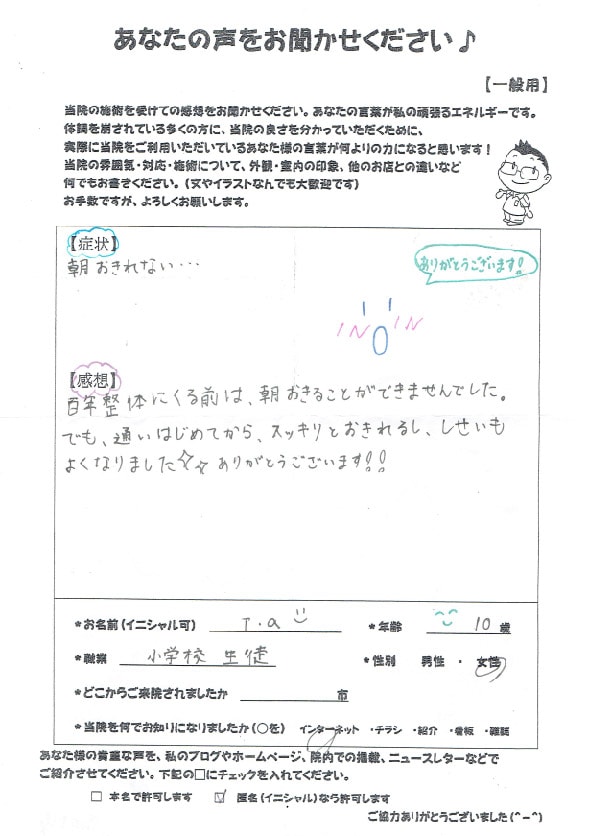 あなたの声をお聞かせください♪
【一般用】
当院の施術を受けての感想をお聞かせください。あなたの言葉が私の頑張るエネルギーです。
体調を崩されている多くの方に、当院の良さを分かっていただくために、
実際に当院をご利用いただいているあなた様の言葉が何よりの力になると思います！
当院の雰囲気・対応・施術について、外観・室内の印象、他のお店との違いなど
何でもお書きください。（文やイラストなんでも大歓迎です）
お手数ですが、よろしくお願いします。
【症状】
朝おきれない…
ありがとうございます！
【感想】
百年整体にくる前は、朝おきることができませんでした。
でも、通いはじめてから、スッキリとおきれるし、しせいも
よくなりました☆☆ありがとうございます!!
*お名前（イニシャル可） T.a *年齢 10歳
*職業 小学校 生徒 *性別 男性 ・ 女性
*どこからご来院されましたか 市
*当院を何でお知りになりましたか（○を） インターネット ・チラシ ・紹介 ・看板 ・雑誌
あなた様の貴重な声を、私のブログやホームページ、院内での掲載、ニュースレターなどで
ご紹介させてください。下記の□にチェックを入れてください。
□ 本名で許可します ☑ 匿名（イニシャル）なら許可します
ご協力ありがとうございました（^-^）